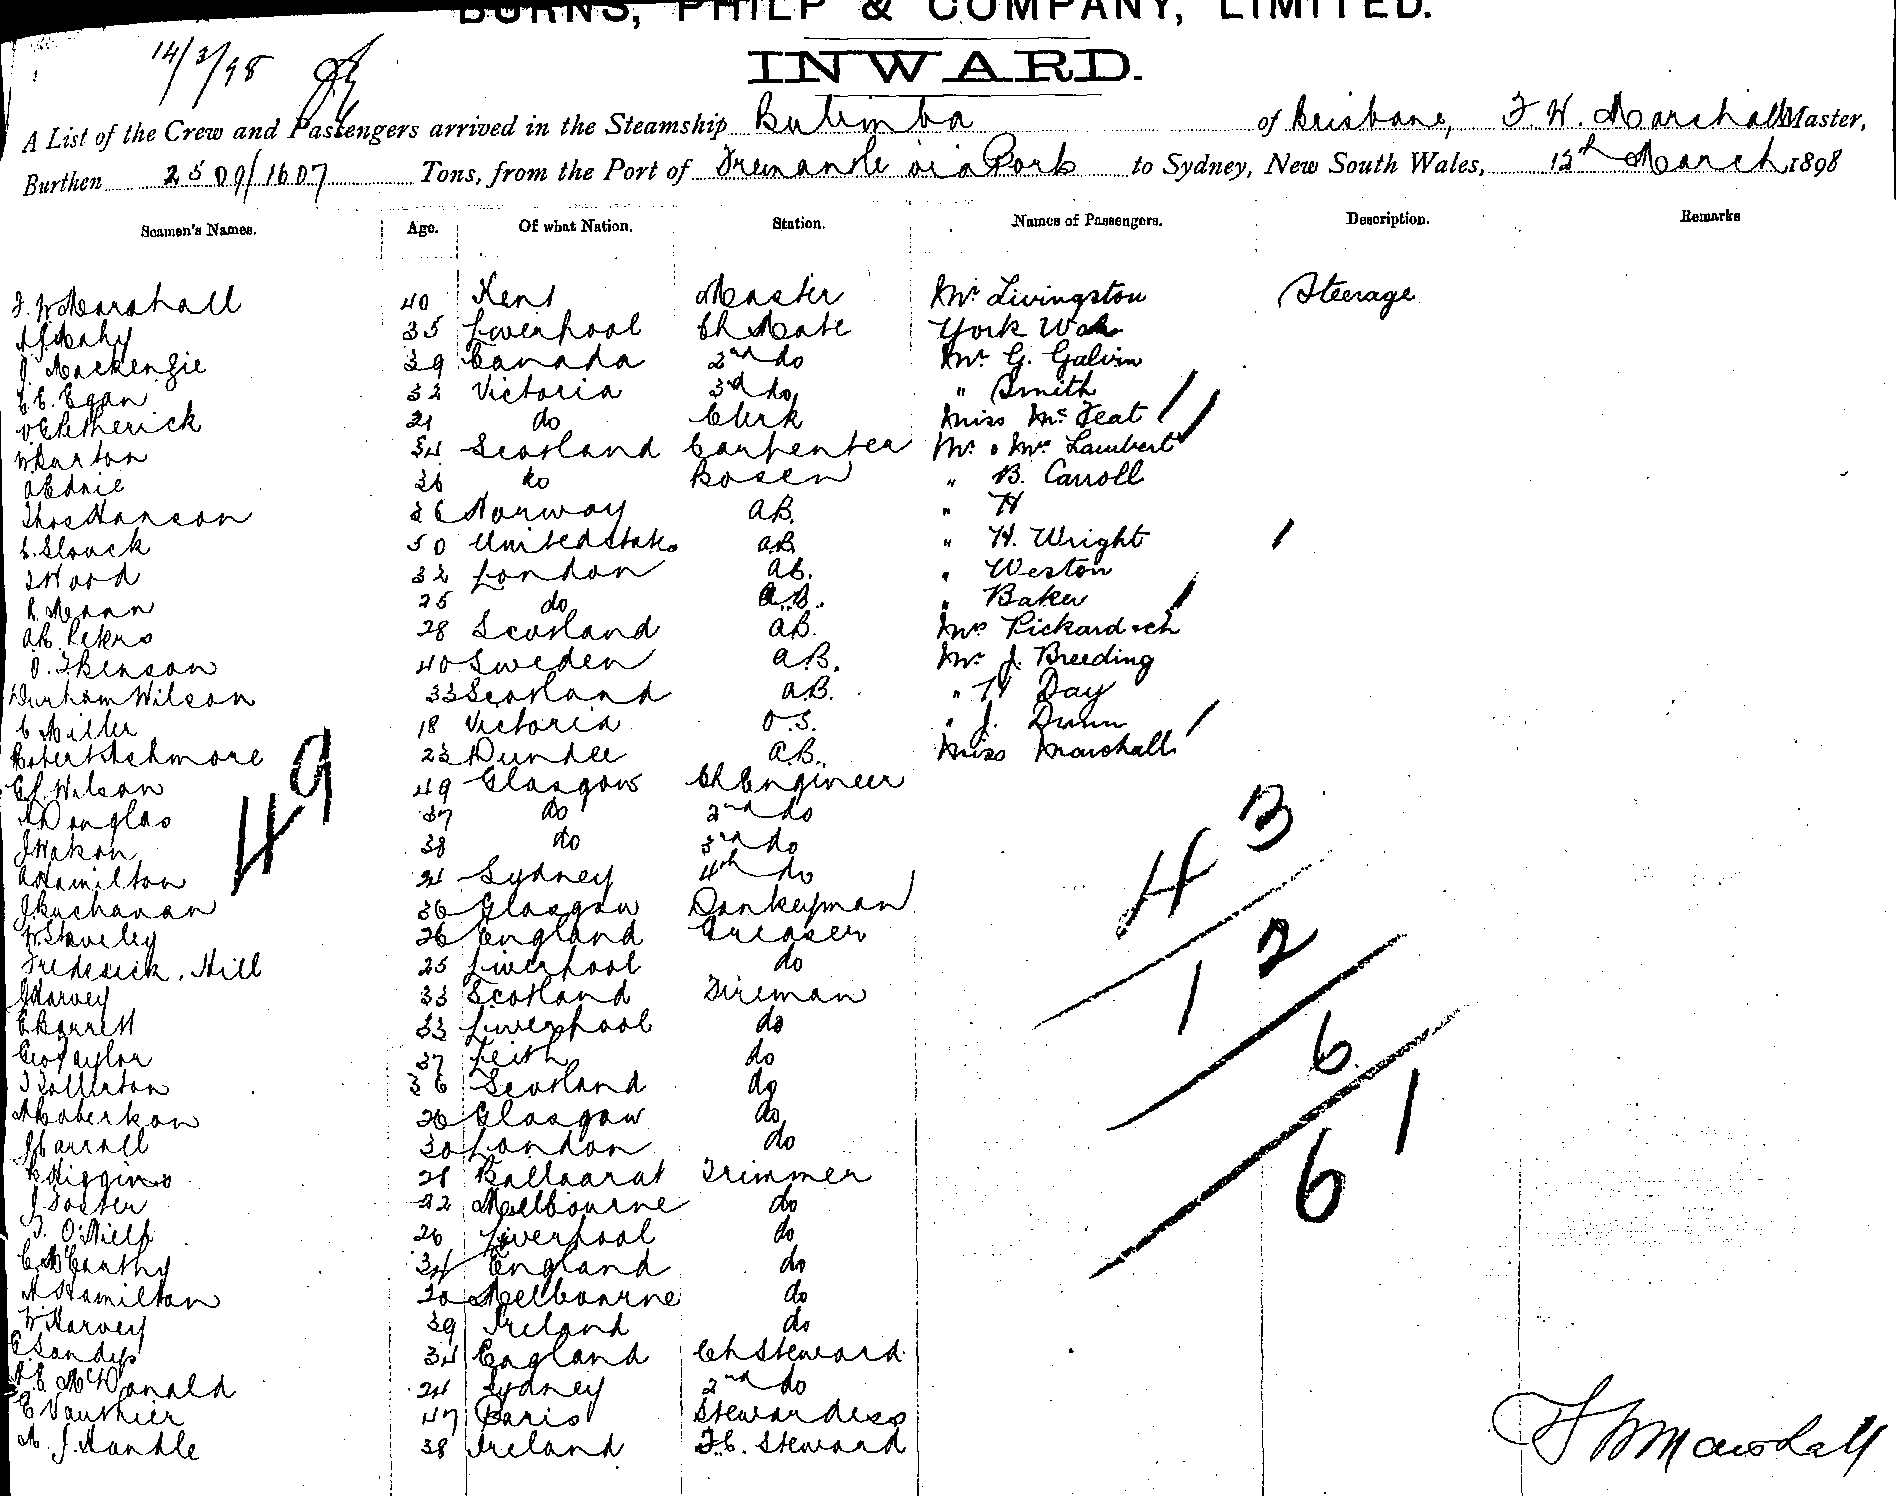 BURNS, PHILP & COMPANY, LIMITED.
INWARD.
14/3/98
A List of the Crew and Passengers arrived in the Steamship Bulimba of Brisbane, F. W. Marshall Master,
Burthen 2509/1607 Tons, from the Port of Fremantle via Ports to Sydney, New South Wales, 12th March 1898
Seamen's Names. Age. Of what Nation. Station. Names of Passengers. Description. Remarks
F. W Marshall 40 Kent Master Mr Livingston Steerage
35 Liverpool Ch Mate York Wah
J. Mackenzie 39 Canada 2nd do Mr G. Galvin
C. E. Egan 32 Victoria 3rd do " Smith
Petherick 21 do Clerk Miss Mc Feat
W Burton 34 Scotland Carpenter Mr & Mrs Lambert
A Edrie 36 do Bosen " B. Carroll
Thos Hanson 36 Norway A.B. " H
50 United States A.B. " H. Wright
J Wood 32 London A.B. " Weston
Mann 25 do A.B. " Baker
28 Scotland A.B. Mrs Pickard & ch
40 Sweden A.B. Mr J. Breeding
Durham Wilson 33 Scotland A.B. " H Day
C Miller 18 Victoria O.S. " J. Dunn
Robert Ashmore 23 Dundee A.B. Miss Marshall
Wilson 49 Glasgow Ch Engineer
Douglas 37 do 2nd do
38 do 3rd do
A Hamilton 21 Sydney 4th do
J Buchanan 36 Glasgow Donkeyman
W Staveley 26 England Greaser
Frederick Hill 25 Liverpool do
J Harvey 33 Scotland Fireman
E Barrett 33 Liverpool do
Geo Taylor 37 Leith do
36 Scotland do
26 Glasgow do
J Carroll 30 London do
Higgins 21 Ballaarat Trimmer
J Foster 22 Melbourne do
T. O'Neill 26 Liverpool do
C. McCarthy 34 England do
A Hamilton 20 Melbourne do
W Harvey 39 Ireland do
E Sandys 34 England Ch Steward
McDonald 24 Sydney 2nd do
E Vauthier 47 Paris Stewardess
J. Handle 38 Ireland F.C. Steward
49
43
12
6
61
F W Marshall